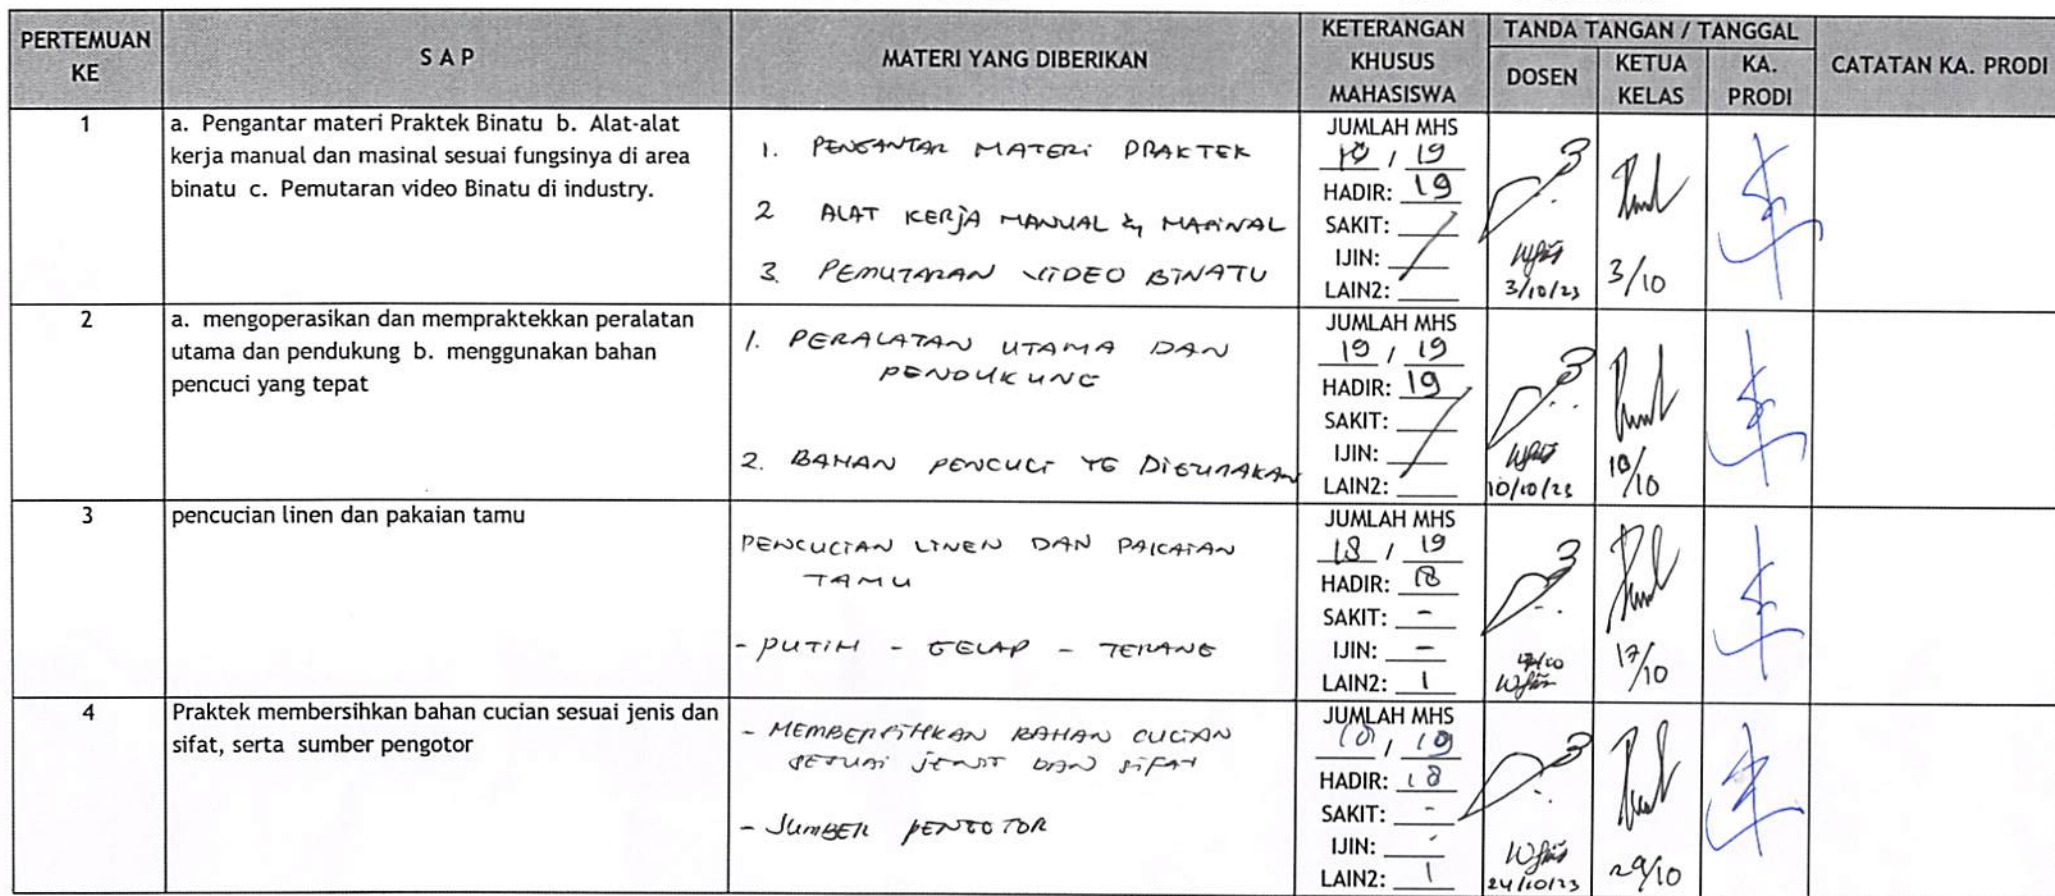 PERTEMUAN KE
S A P
MATERI YANG DIBERIKAN
KETERANGAN KHUSUS MAHASISWA
TANDA TANGAN / TANGGAL
DOSEN
KETUA KELAS
KA. PRODI
CATATAN KA. PRODI
1
a. Pengantar materi Praktek Binatu b. Alat-alat
kerja manual dan masinal sesuai fungsinya di area
binatu c. Pemutaran video Binatu di industry.
1. PENGANTAR MATERI PRAKTEK
2 ALAT KERJA MANUAL & MASINAL
3. PEMUTARAN VIDEO BINATU
JUMLAH MHS
/ 19
HADIR: 19
SAKIT:
IJIN:
LAIN2:
3/10/23
3/10
2
a. mengoperasikan dan mempraktekkan peralatan
utama dan pendukung b. menggunakan bahan
pencuci yang tepat
1. PERALATAN UTAMA DAN
PENDUKUNG
2. BAHAN PENCUCI YG DIGUNAKAN
JUMLAH MHS
19 / 19
HADIR: 19
SAKIT:
IJIN:
LAIN2:
10/10/23
10/10
3
pencucian linen dan pakaian tamu
PENCUCIAN LINEN DAN PAKAIAN
TAMU
- PUTIH - GELAP - TERANG
JUMLAH MHS
18 / 19
HADIR: 18
SAKIT: -
IJIN: -
LAIN2: 1
17/10
17/10
4
Praktek membersihkan bahan cucian sesuai jenis dan
sifat, serta sumber pengotor
- MEMBERSIHKAN BAHAN CUCIAN
SESUAI JENIS DAN SIFAT
- SUMBER PENGOTOR
JUMLAH MHS
18 / 19
HADIR: 18
SAKIT: -
IJIN: -
LAIN2: 1
24/10/23
24/10